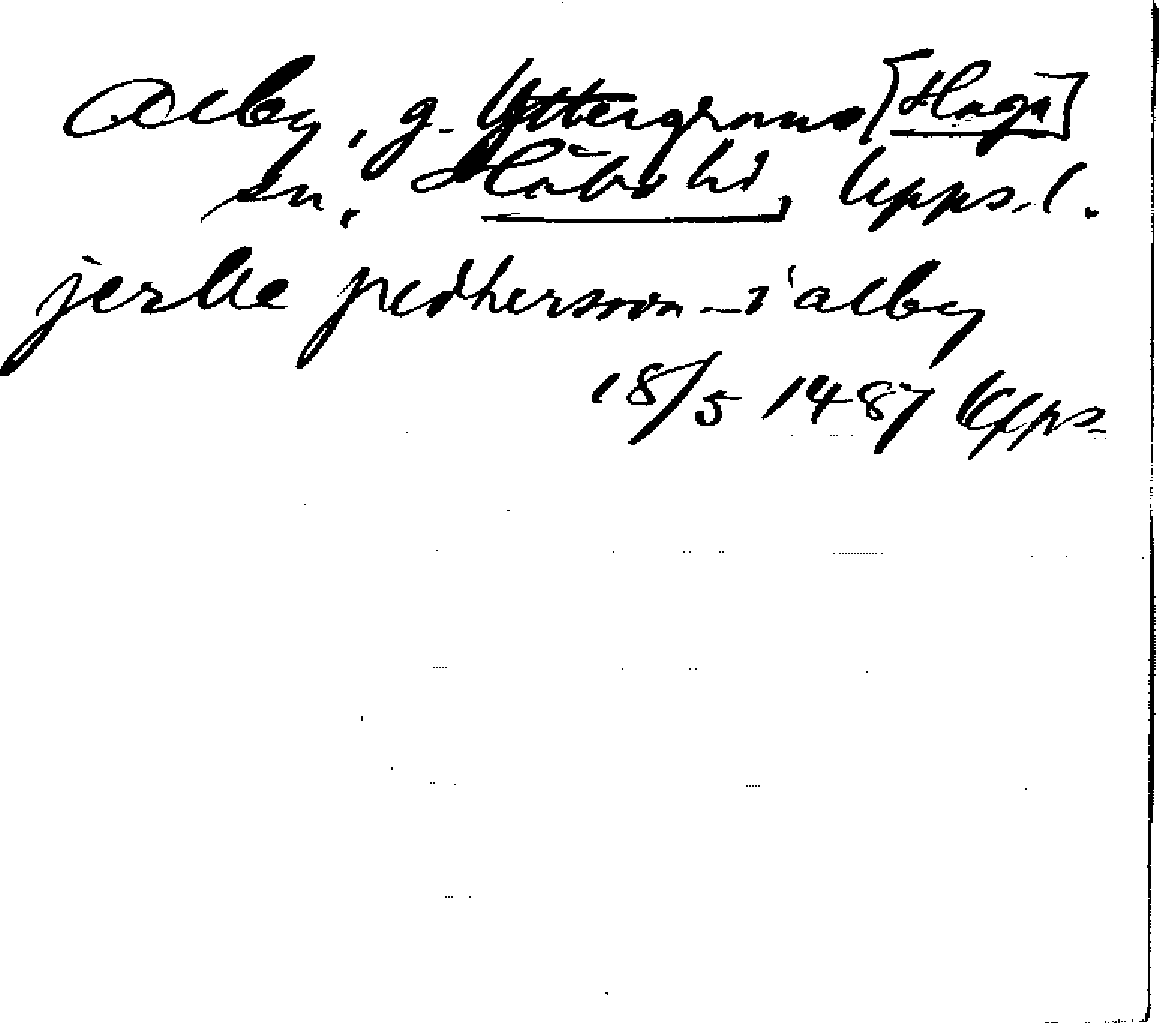 Alby, g. Yttergrans [Haga]
sn, Håbo hd, Upps. l.
jerlle pedhersson i alby
18/5 1487 Upps